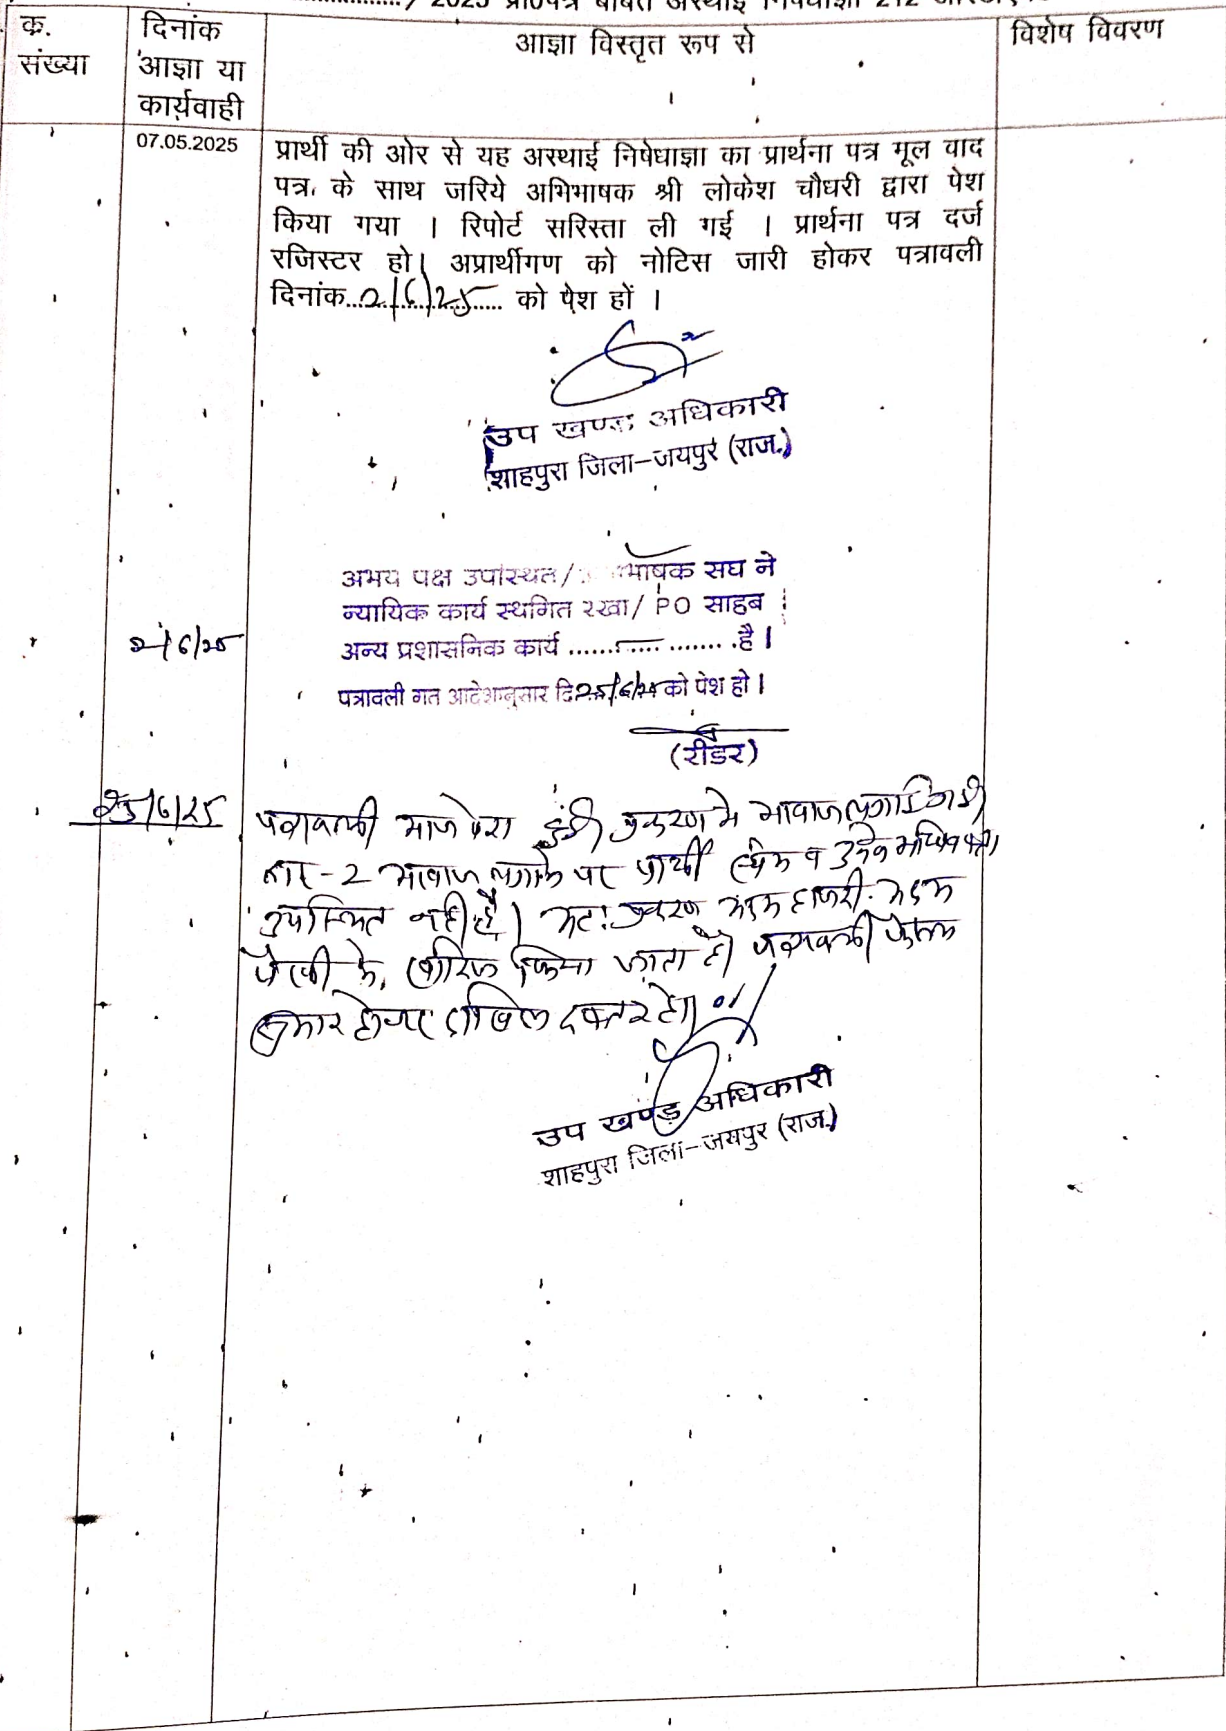 / 2025 प्रा0पत्र बाबत अस्थाई निषेधाज्ञा 212
क्र. संख्या
दिनांक आज्ञा या कार्य़वाही
आज्ञा विस्तृत रूप से
विशेष विवरण
07.05.2025
प्रार्थी की ओर से यह अस्थाई निषेधाज्ञा का प्रार्थना पत्र मूल वाद
पत्र के साथ जरिये अभिभाषक श्री लोकेश चौधरी द्वारा पेश
किया गया । रिपोर्ट सरिस्ता ली गई । प्रार्थना पत्र दर्ज
रजिस्टर हो। अप्रार्थीगण को नोटिस जारी होकर पत्रावली
दिनांक 2/6/25 को पेश हों ।
उप खण्ड अधिकारी
शाहपुरा जिला-जयपुर (राज.)
अभय पक्ष उपस्थित/ भाषक सघ ने
न्यायिक कार्य स्थगित रखा/ PO साहब
2/6/25
अन्य प्रशासनिक कार्य ................ है ।
पत्रावली गत आदेशानुसार दि 25/6/25 को पेश हो ।
(रीडर)
25/6/25
पत्रावली आज पेश हुई। प्रकरण मे आवाज लगाई गई
बार-2 आवाज लगाने पर प्रार्थी व उनके
उपस्थित नही है। अतः प्रकरण अदम हाजरी अदम
पैरवी के खारिज किया जाता है। पत्रावली फैसल
शुमार होकर दाखिल दफ्तर हो।
उप खण्ड अधिकारी
शाहपुरा जिला-जयपुर (राज.)